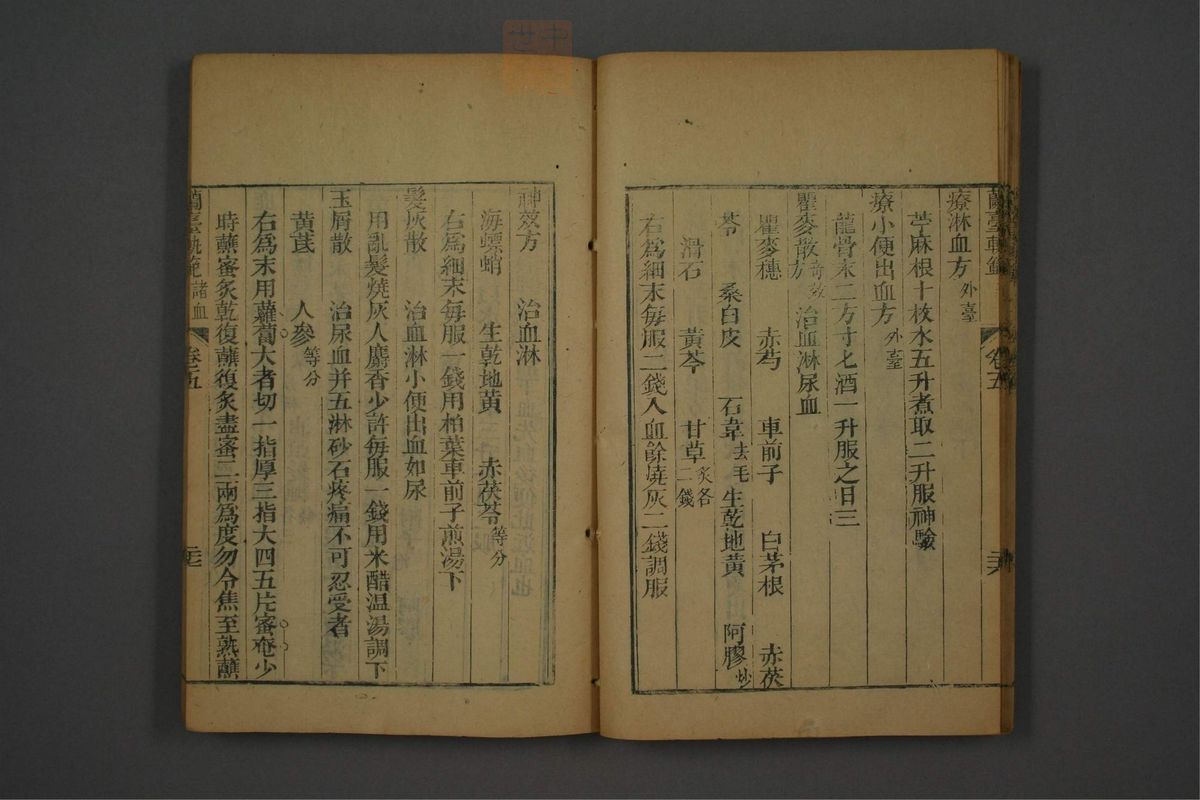 蘭臺軌範 卷五 二六
療淋血方外臺
苧麻根十枚水五升煮取二升服神驗
療小便出血方外臺
龍骨末二方寸匕酒一升服之日三
瞿麥散奇效方 治血淋尿血
瞿麥穗 赤芍 車前子 白茅根 赤茯
苓 桑白皮 石韋去毛 生乾地黃 阿膠炒
滑石 黃芩 甘草炙各二錢
右為細末每服二錢入血餘燒灰二錢調服
神效方 治血淋
海螵蛸 生乾地黃 赤茯苓等分
右為細末每服一錢用柏葉車前子煎湯下
髮灰散 治血淋小便出血如尿
用亂髮燒灰入麝香少許每服一錢用米醋温湯調下
玉屑散 治尿血并五淋砂石疼痛不可忍受者
黃芪 人參等分
右為末用蘿蔔大者切一指厚三指大四五片蜜奄少
時蘸蜜炙乾復蘸復炙盡蜜二兩為度勿令焦至熟蘸
蘭臺軌範 諸血 卷五 二七